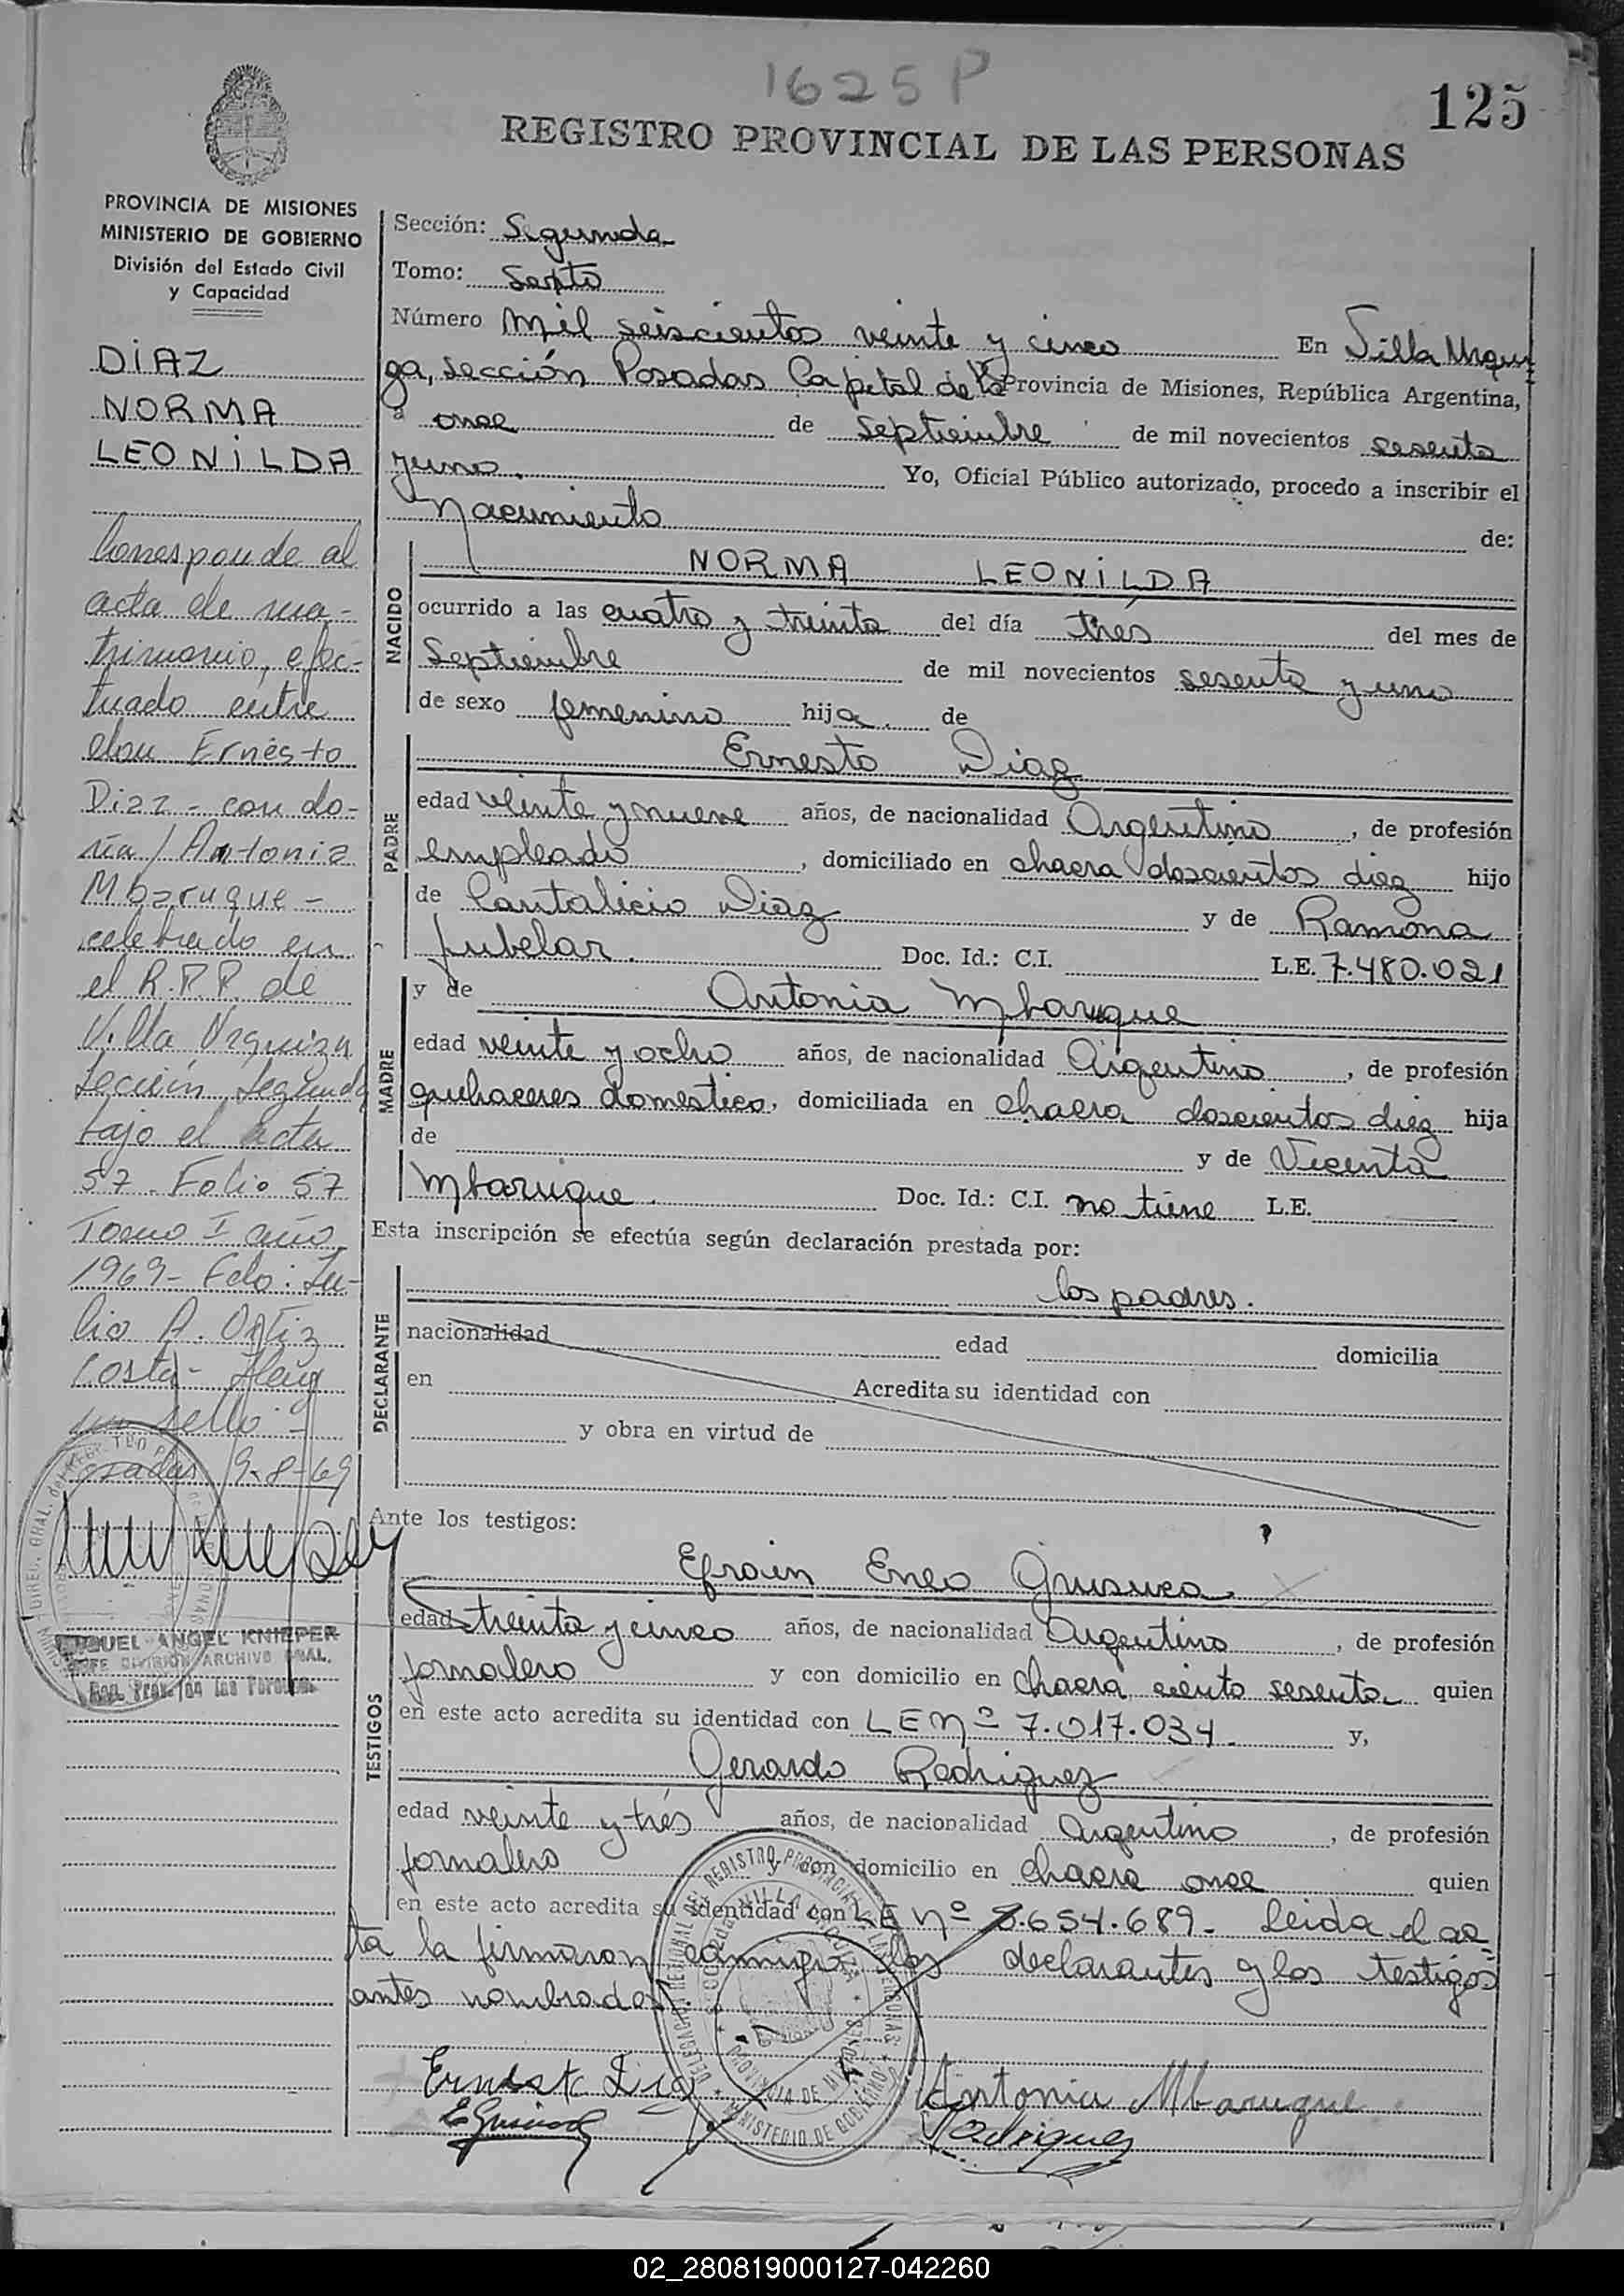 1625 P
125
REGISTRO PROVINCIAL DE LAS PERSONAS
PROVINCIA DE MISIONES
MINISTERIO DE GOBIERNO
División del Estado Civil
y Capacidad
DIAZ
NORMA
LEONILDA
Corresponde al
acta de ma-
trimonio, efec-
tuado entre
don Ernesto
Diaz - con do-
ña Antonia
Mbaruque -
celebrado en
el R.P.P. de
Villa Urquiza
Sección Segunda
bajo el acta
57 - Folio 57
Tomo I año
1969 - Fdo: Ju-
lio A. Ortiz
Costa - Hay
un sello -
Posadas 9-8-69
MIGUEL ANGEL KNIEPER
JEFE DIVISION ARCHIVO GRAL.
Reg. Prov. de las Personas
Sección: Segunda
Tomo: Sexto
Número mil seiscientos veinte y cinco En Villa Urqui
za, sección Posadas Capital de la Provincia de Misiones, República Argentina,
a once de Septiembre de mil novecientos sesenta
y uno. Yo, Oficial Público autorizado, procedo a inscribir el
Nacimiento de:
NACIDO
NORMA LEONILDA
ocurrido a las cuatro y treinta del día trés del mes de
Septiembre de mil novecientos sesenta y uno
de sexo femenino hija de
PADRE
Ernesto Diaz
edad veinte y nueve años, de nacionalidad Argentino, de profesión
empleado, domiciliado en chacra doscientos diez hijo
de Pantalicio Diaz y de Ramona
Jubelar. Doc. Id.: C.I. L.E. 7.480.021
MADRE
y de Antonia Mbaruque
edad veinte y ocho años, de nacionalidad Argentina, de profesión
quehaceres domestico, domiciliada en chacra doscientos diez hija
de y de Vicenta
Mbaruque. Doc. Id.: C.I. no tiene L.E.
Esta inscripción se efectúa según declaración prestada por:
DECLARANTE
los padres.
nacionalidad edad domicilia
en Acredita su identidad con
y obra en virtud de
Ante los testigos:
TESTIGOS
Efrain Eneo
edad treinta y cinco años, de nacionalidad Argentino, de profesión
jornalero y con domicilio en Chacra ciento sesenta quien
en este acto acredita su identidad con LE Nº 7.017.034. y,
Gerardo Rodriguez
edad veinte y trés años, de nacionalidad Argentino, de profesión
jornalero y con domicilio en chacra once quien
en este acto acredita su identidad con LE Nº .654.689- Leida el ac
ta la firmaron conmigo los declarantes y los testigos
antes nombrados.
DELEGACION REGIONAL DE REGISTRO PROVINCIAL DE LAS PERSONAS
MINISTERIO DE GOBIERNO
PROVINCIA DE MISIONES
Ernesto Diaz
Antonia Mbaruque
Rodriguez
02_280819000127-042260